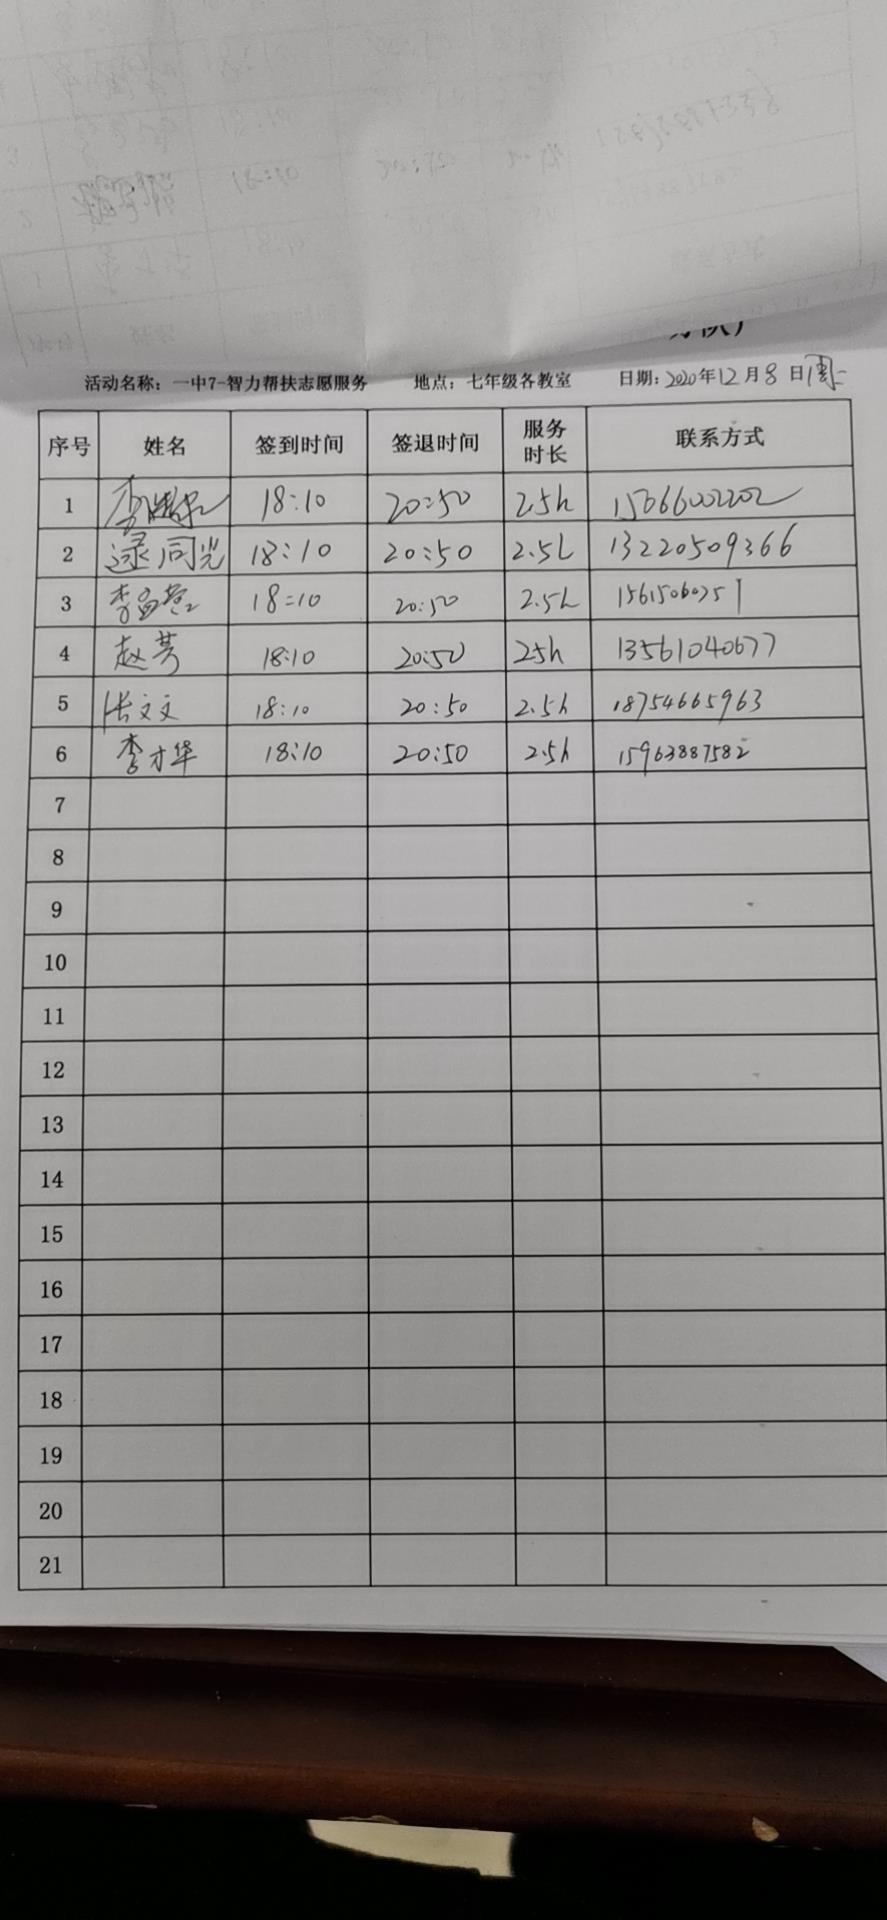 活动名称：一中7-智力帮扶志愿服务 地点：七年级各教室 日期：2020年12月8日 周二
序号 姓名 签到时间 签退时间 服务时长 联系方式
1 李 18:10 20:50 2.5h 15066002202
2 逯同光 18:10 20:50 2.5h 13220509366
3 李 18:10 20:50 2.5h 15615060751
4 赵芳 18:10 20:50 25h 13561040677
5 张文文 18:10 20:50 2.5h 18754665963
6 李才华 18:10 20:50 2.5h 15963887582
7
8
9
10
11
12
13
14
15
16
17
18
19
20
21